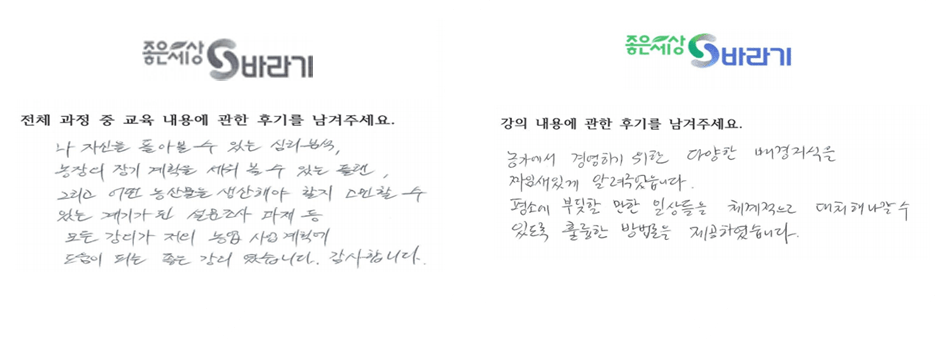 좋은세상 바라기
전체 과정 중 교육 내용에 관한 후기를 남겨주세요.
나 자신을 돌아볼 수 있는 심리분석,
농장의 장기 계획을 세워 볼 수 있는 플랜,
그리고 어떤 농산물을 생산해야 할지 고민할 수
있는 계기가 된 설문조사 과제 등
모든 강의가 저의 농업 사업계획에
도움이 되는 좋은 강의 였습니다. 감사합니다.
좋은세상 바라기
강의 내용에 관한 후기를 남겨주세요.
농가에서 경영하기 위한 다양한 배경지식을
짜임새있게 알려주었습니다.
평소에 부딪힐 만한 일상들을 체계적으로 대처해나갈 수
있도록 훌륭한 방법론을 제공하였습니다.